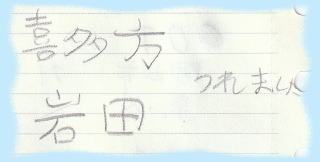 喜多方
つれました
岩田